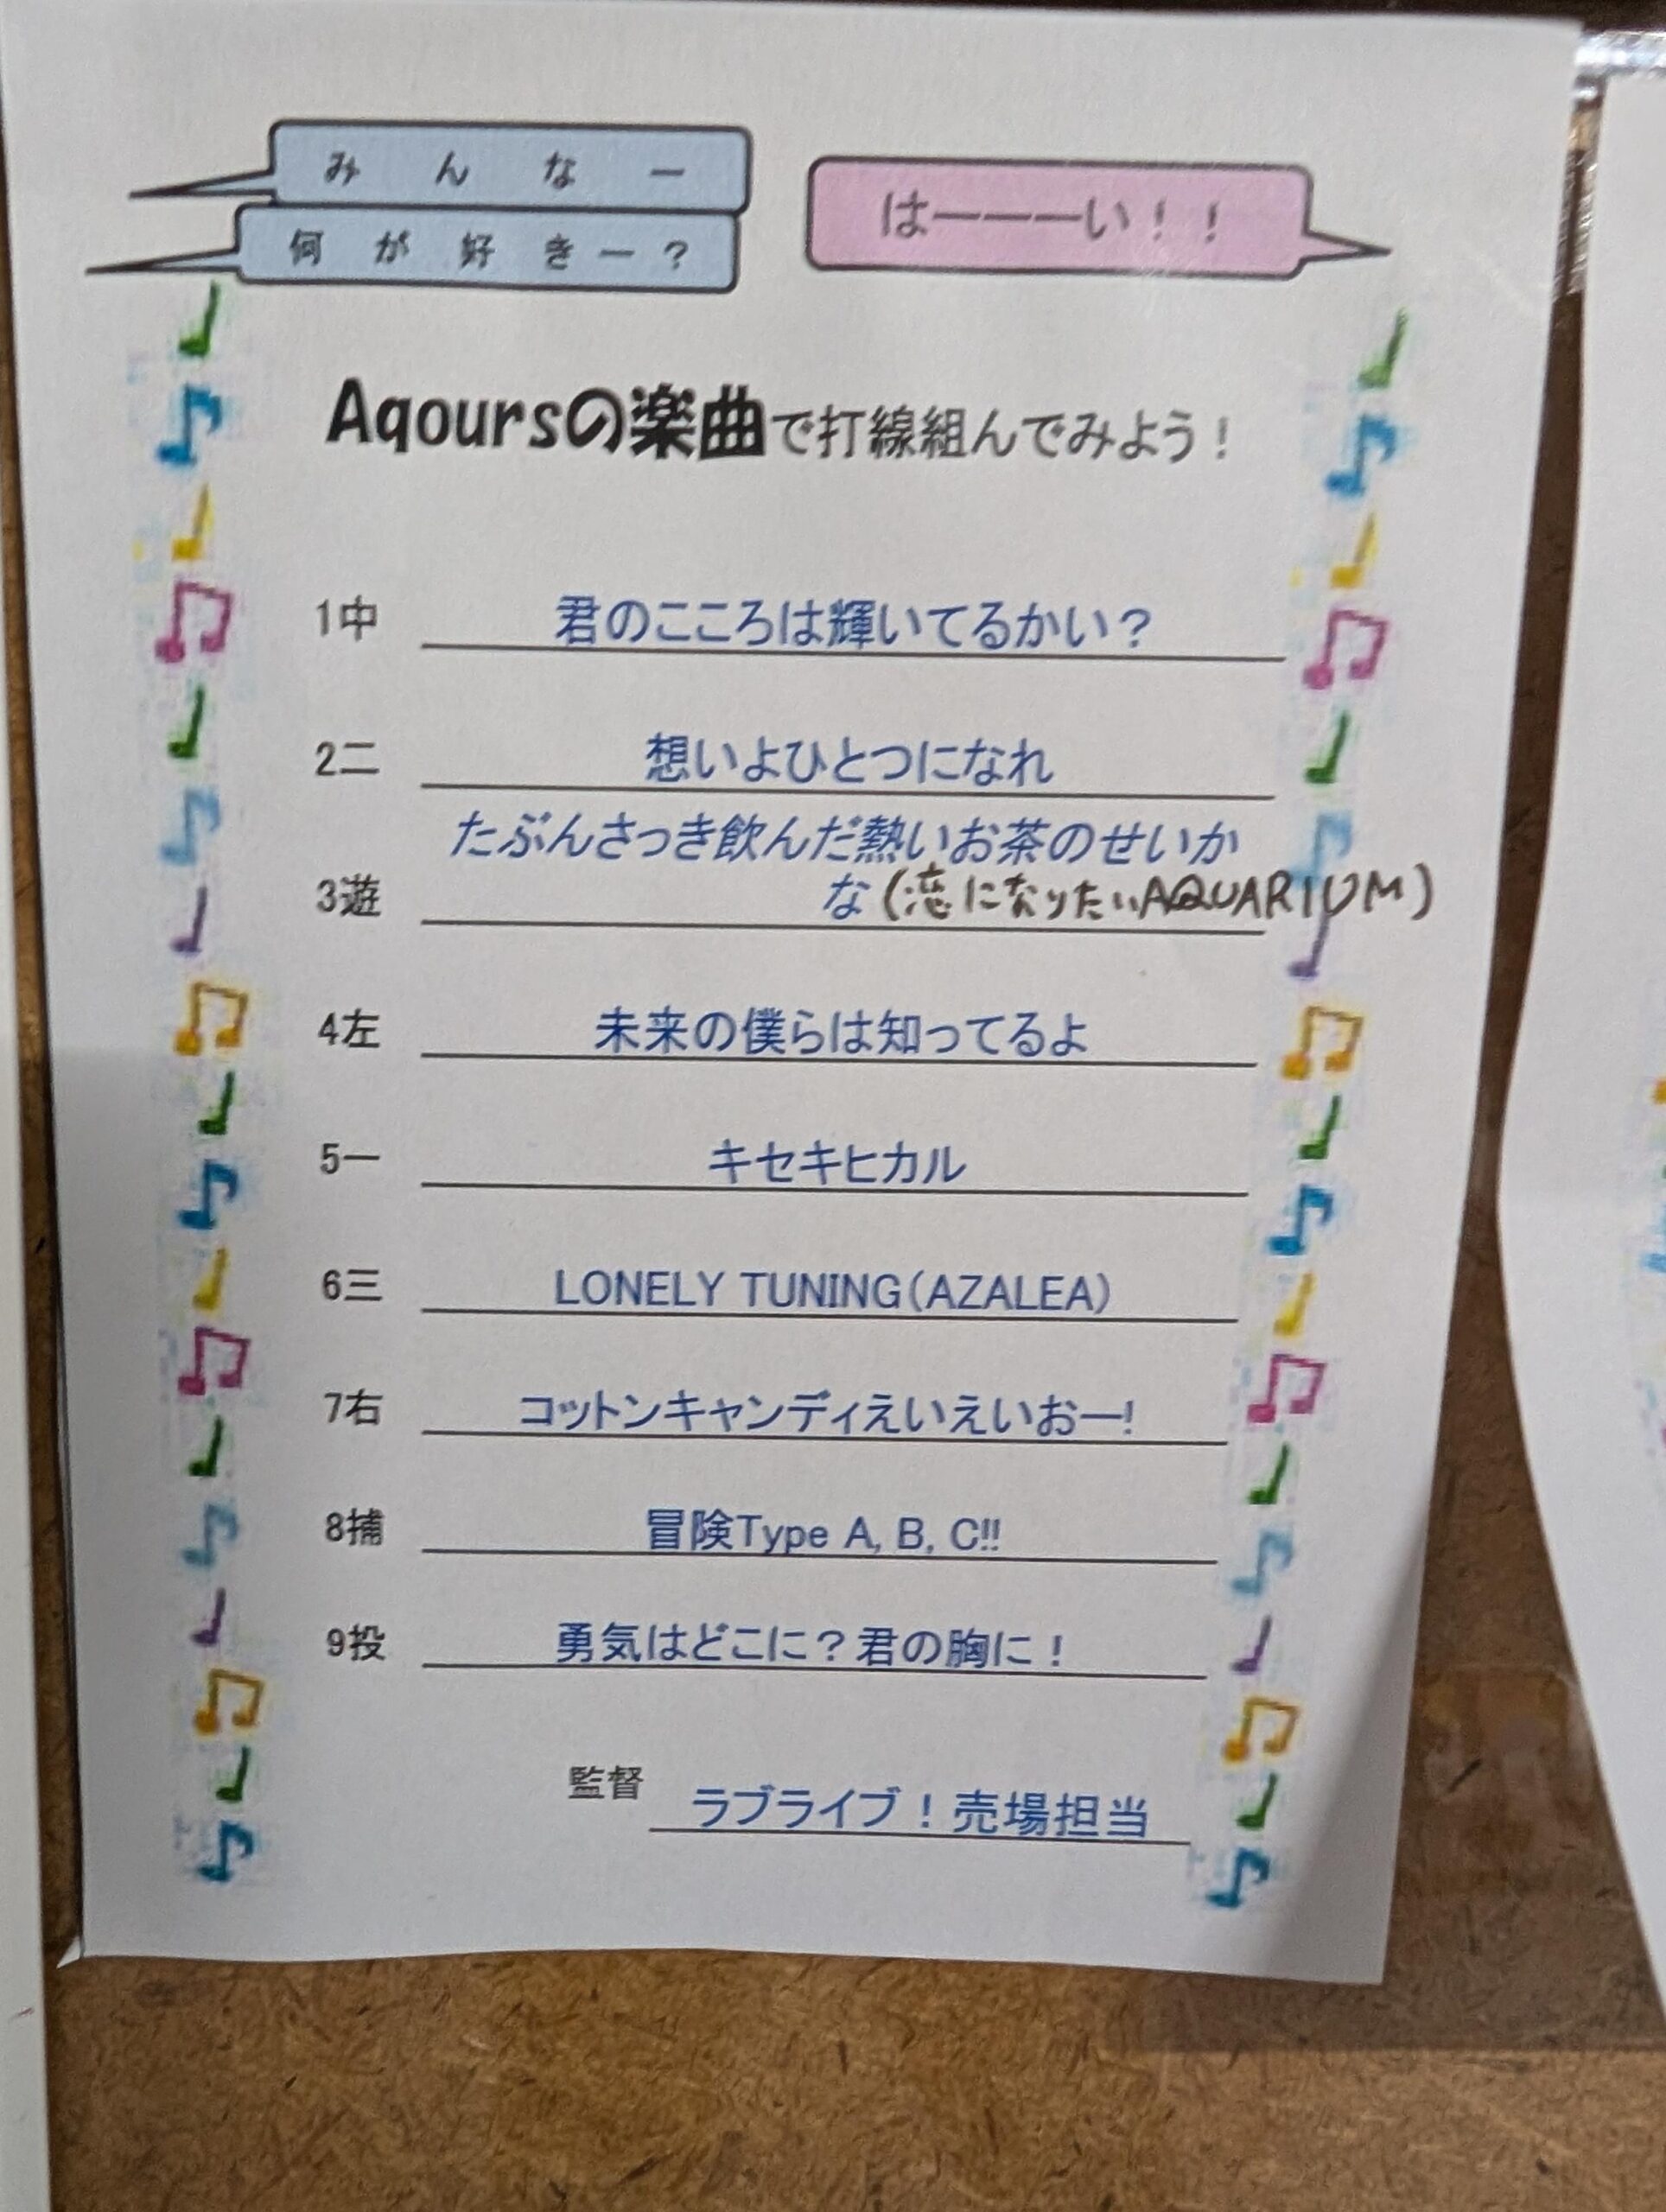 みんなー
何が好きー？
はーーーい！！
Aqoursの楽曲で打線組んでみよう！
1中 君のこころは輝いてるかい？
2二 想いよひとつになれ
たぶんさっき飲んだ熱いお茶のせいか
3遊 な(恋になりたいAQUARIUM)
4左 未来の僕らは知ってるよ
5一 キセキヒカル
6三 LONELY TUNING(AZALEA)
7右 コットンキャンディえいえいおー!
8捕 冒険Type A, B, C!!
9投 勇気はどこに？君の胸に！
監督 ラブライブ！売場担当